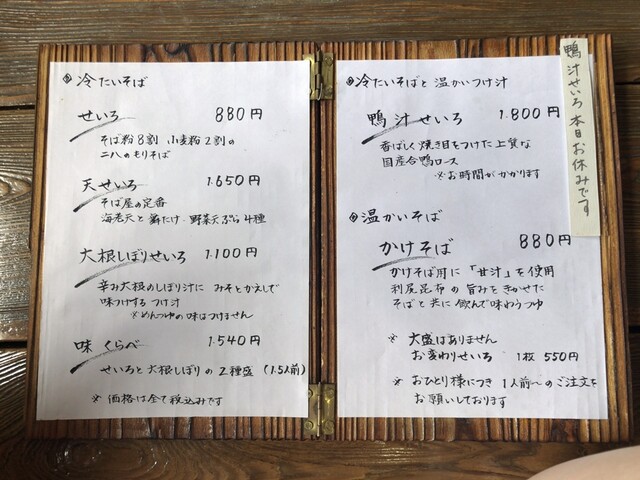 冷たいそば
せいろ 880円
そば粉8割 小麦粉2割の
二八のもりそば
天せいろ 1.650円
そば屋の定番
海老天と舞たけ・野菜天ぷら4種
大根しぼりせいろ 1.100円
辛み大根のしぼり汁に みそとかえしで
味つけする つけ汁
※めんつゆの味はつけません
味くらべ 1.540円
せいろと大根しぼりの2種盛 (1.5人前)
※ 価格は全て税込みです
冷たいそばと 温かいつけ汁
鴨汁せいろ 1.800円
香ばしく焼き目をつけた上質な
国産合鴨ロース
※お時間がかかります
温かいそば
かけそば 880円
かけそば用に「甘汁」を使用
利尻昆布の旨みをきかせた
そばと共に飲んで味わうつゆ
※ 大盛はありません
お変わりせいろ 1枚 550円
※ おひとり様につき 1人前〜のご注文を
お願いしております
鴨汁せいろ本日お休みです